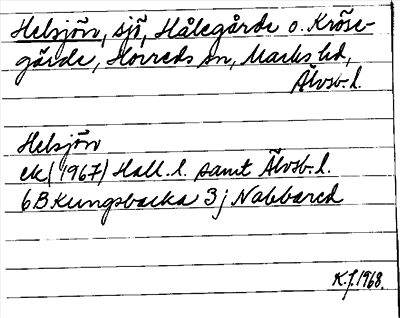 Helsjön, sjö, Hålegårde o. Kröse-
gårde, Horreds sn, Marks hd,
Älvsb. l.
Helsjön
ek (1967) Hall. l. samt Älvsb. l.
6B Kungsbacka 3j Nabbared
K.J. 1968.